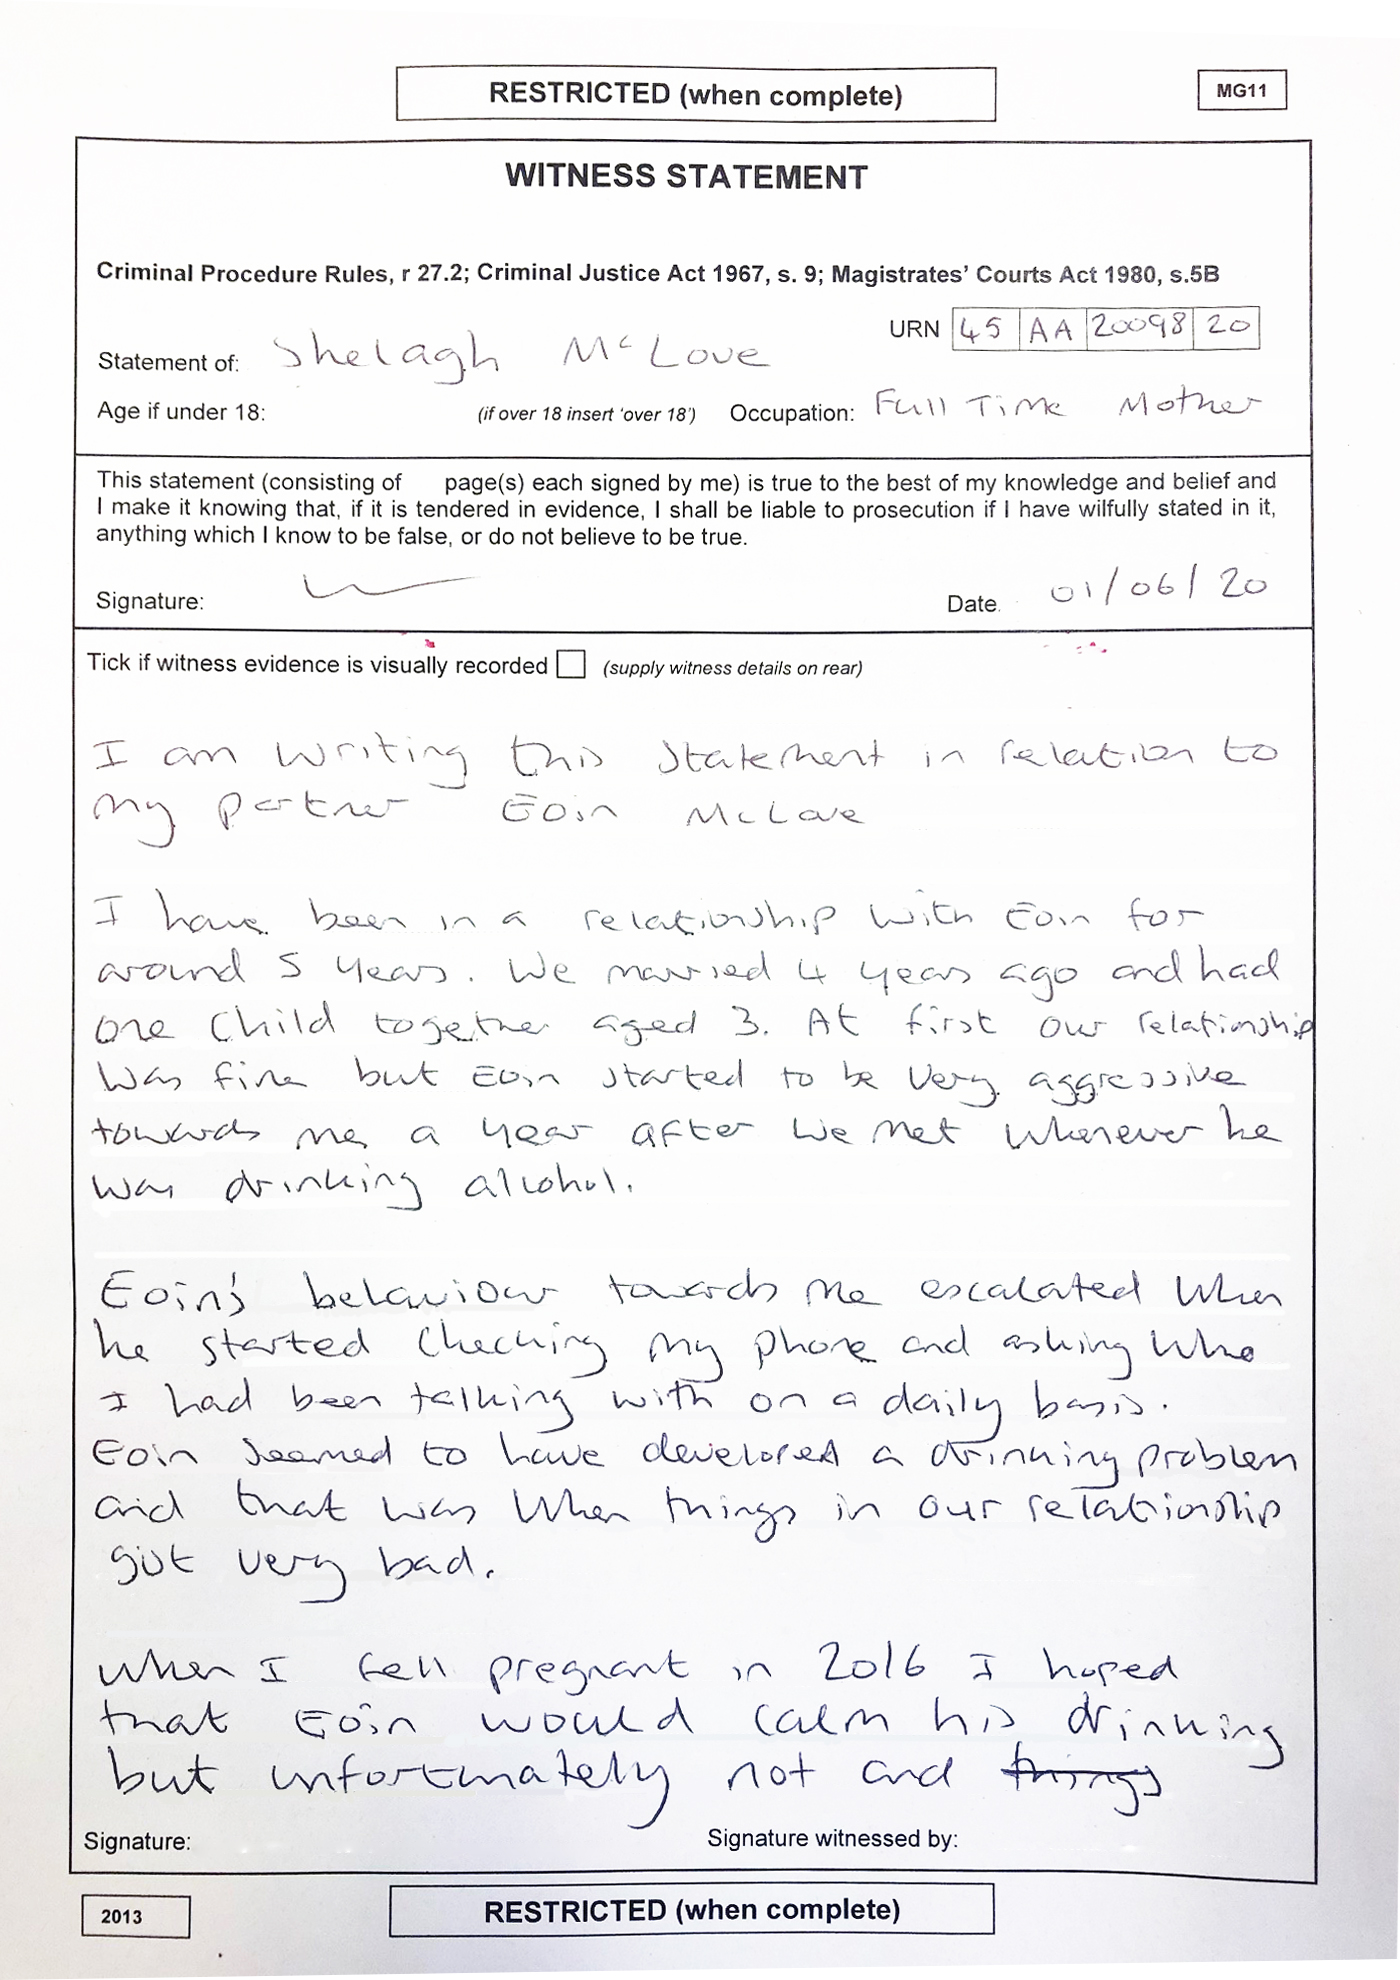 RESTRICTED (when complete)
MG11
WITNESS STATEMENT
Criminal Procedure Rules, r 27.2; Criminal Justice Act 1967, s. 9; Magistrates' Courts Act 1980, s.5B
URN 45 AA 20098 20
Statement of: Shelagh McLove
Age if under 18: (if over 18 insert 'over 18') Occupation: Full Time Mother
This statement (consisting of page(s) each signed by me) is true to the best of my knowledge and belief and
I make it knowing that, if it is tendered in evidence, I shall be liable to prosecution if I have wilfully stated in it,
anything which I know to be false, or do not believe to be true.
Signature: Date 01/06/20
Tick if witness evidence is visually recorded (supply witness details on rear)
I am writing this statement in relation to
my partner Eoin McLove
I have been in a relationship with Eoin for
around 5 years. We married 4 years ago and had
one child together aged 3. At first our relationship
was fine but Eoin started to be very aggressive
towards me a year after we met whenever he
was drinking alcohol.
Eoin's behaviour towards me escalated when
he started checking my phone and asking who
I had been talking with on a daily basis.
Eoin seemed to have developed a drinking problem
and that was when things in our relationship
got very bad.
When I fell pregnant in 2016 I hoped
that Eoin would calm his drinking
but unfortunately not and things
Signature: Signature witnessed by:
2013
RESTRICTED (when complete)